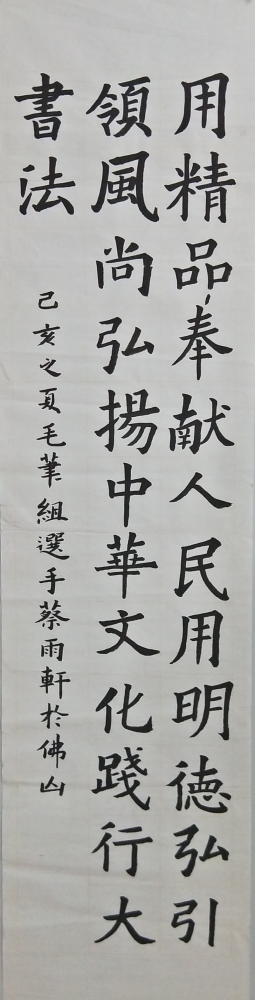 用精品奉献人民用明德弘引
領風尚弘揚中華文化踐行大
書法
己亥之夏毛筆組選手蔡雨軒於佛山